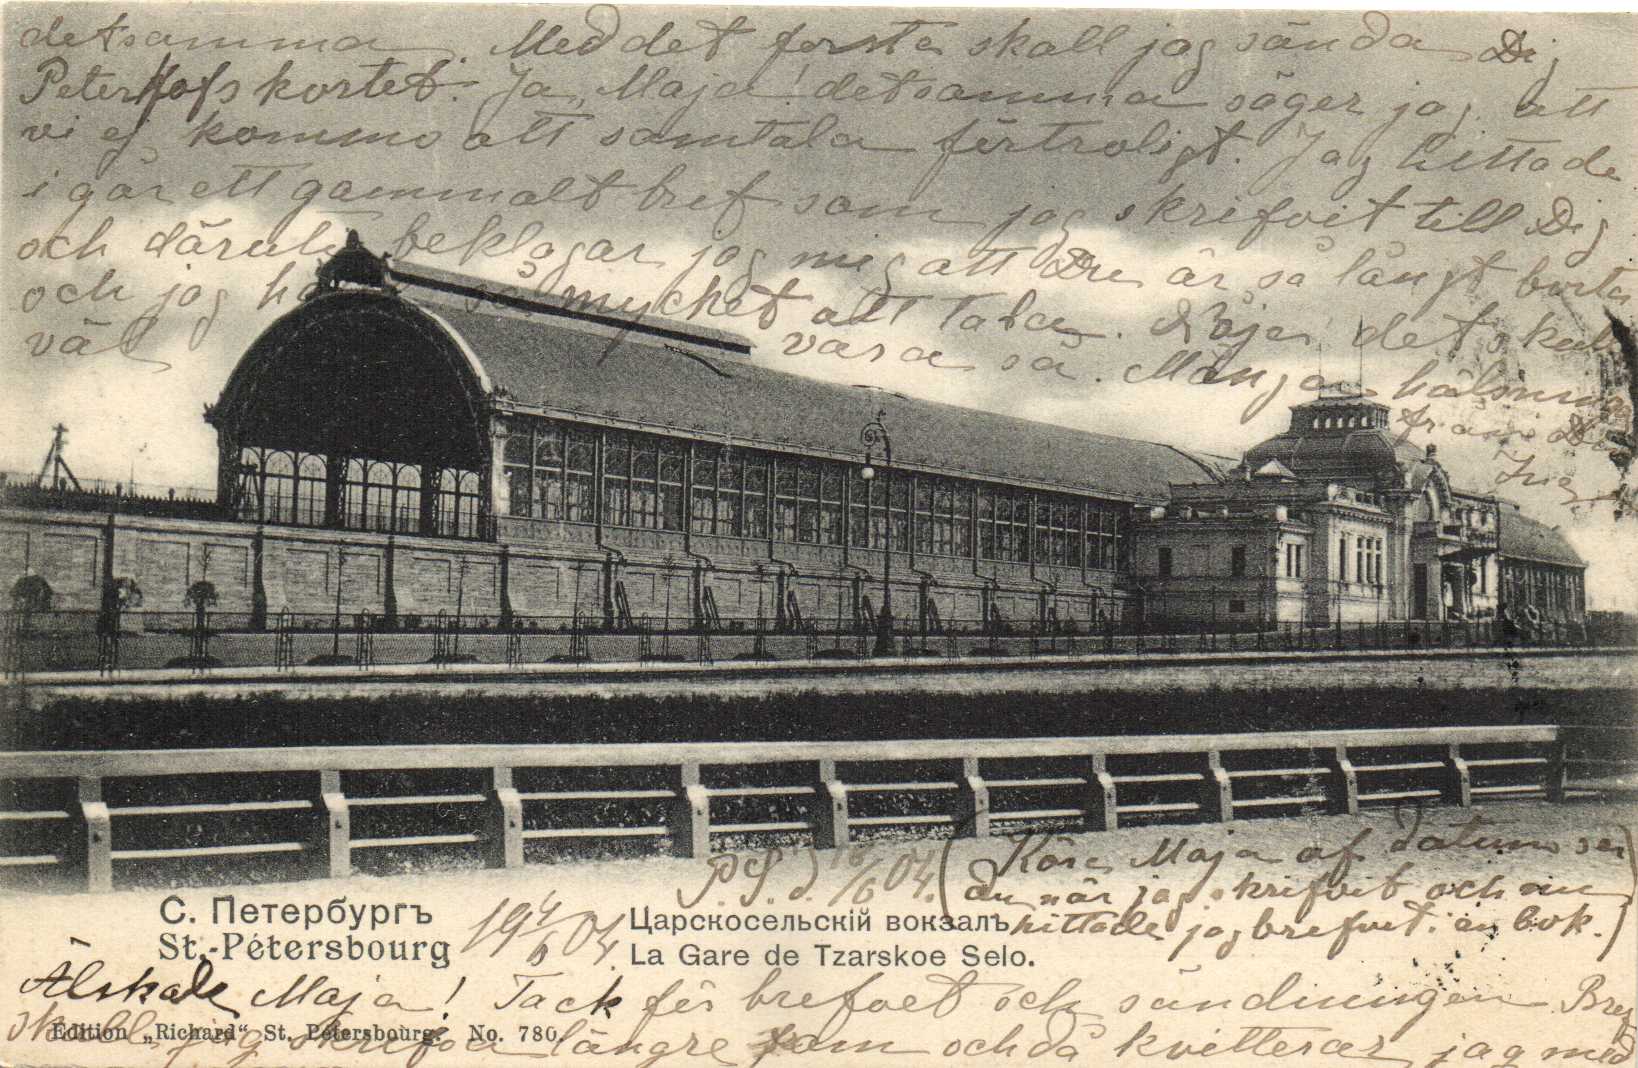 detsamma. Med det första skall jag sända Dig
Peterhofs kortet. Ja, Maja! detsamma säger jag, att
vi ej kommo att samtala förtroligt. Jag hittade
i går ett gammalt bref som jag skrifvit till Dig
och däruti beklagar jag mig att Du är så långt borta
och jag har så mycket att tala. Nåja, det skulle
väl vara så. Många hälsningar
från Din
P.S.) 16/6 04. (Kära Maja af datum ser
du när jag skrifvit och nu
hittade jag brefvet i en bok.)
С. Петербургъ
St.-Pétersbourg
19 4/6 04
Царскосельскій вокзалъ
La Gare de Tzarskoe Selo.
Älskade Maja! Tack för brefvet och sändningen Bref
skall jag skrifva längre fram och då kvitterar jag med
Edition „Richard“ St. Pétersbourg. No. 780.